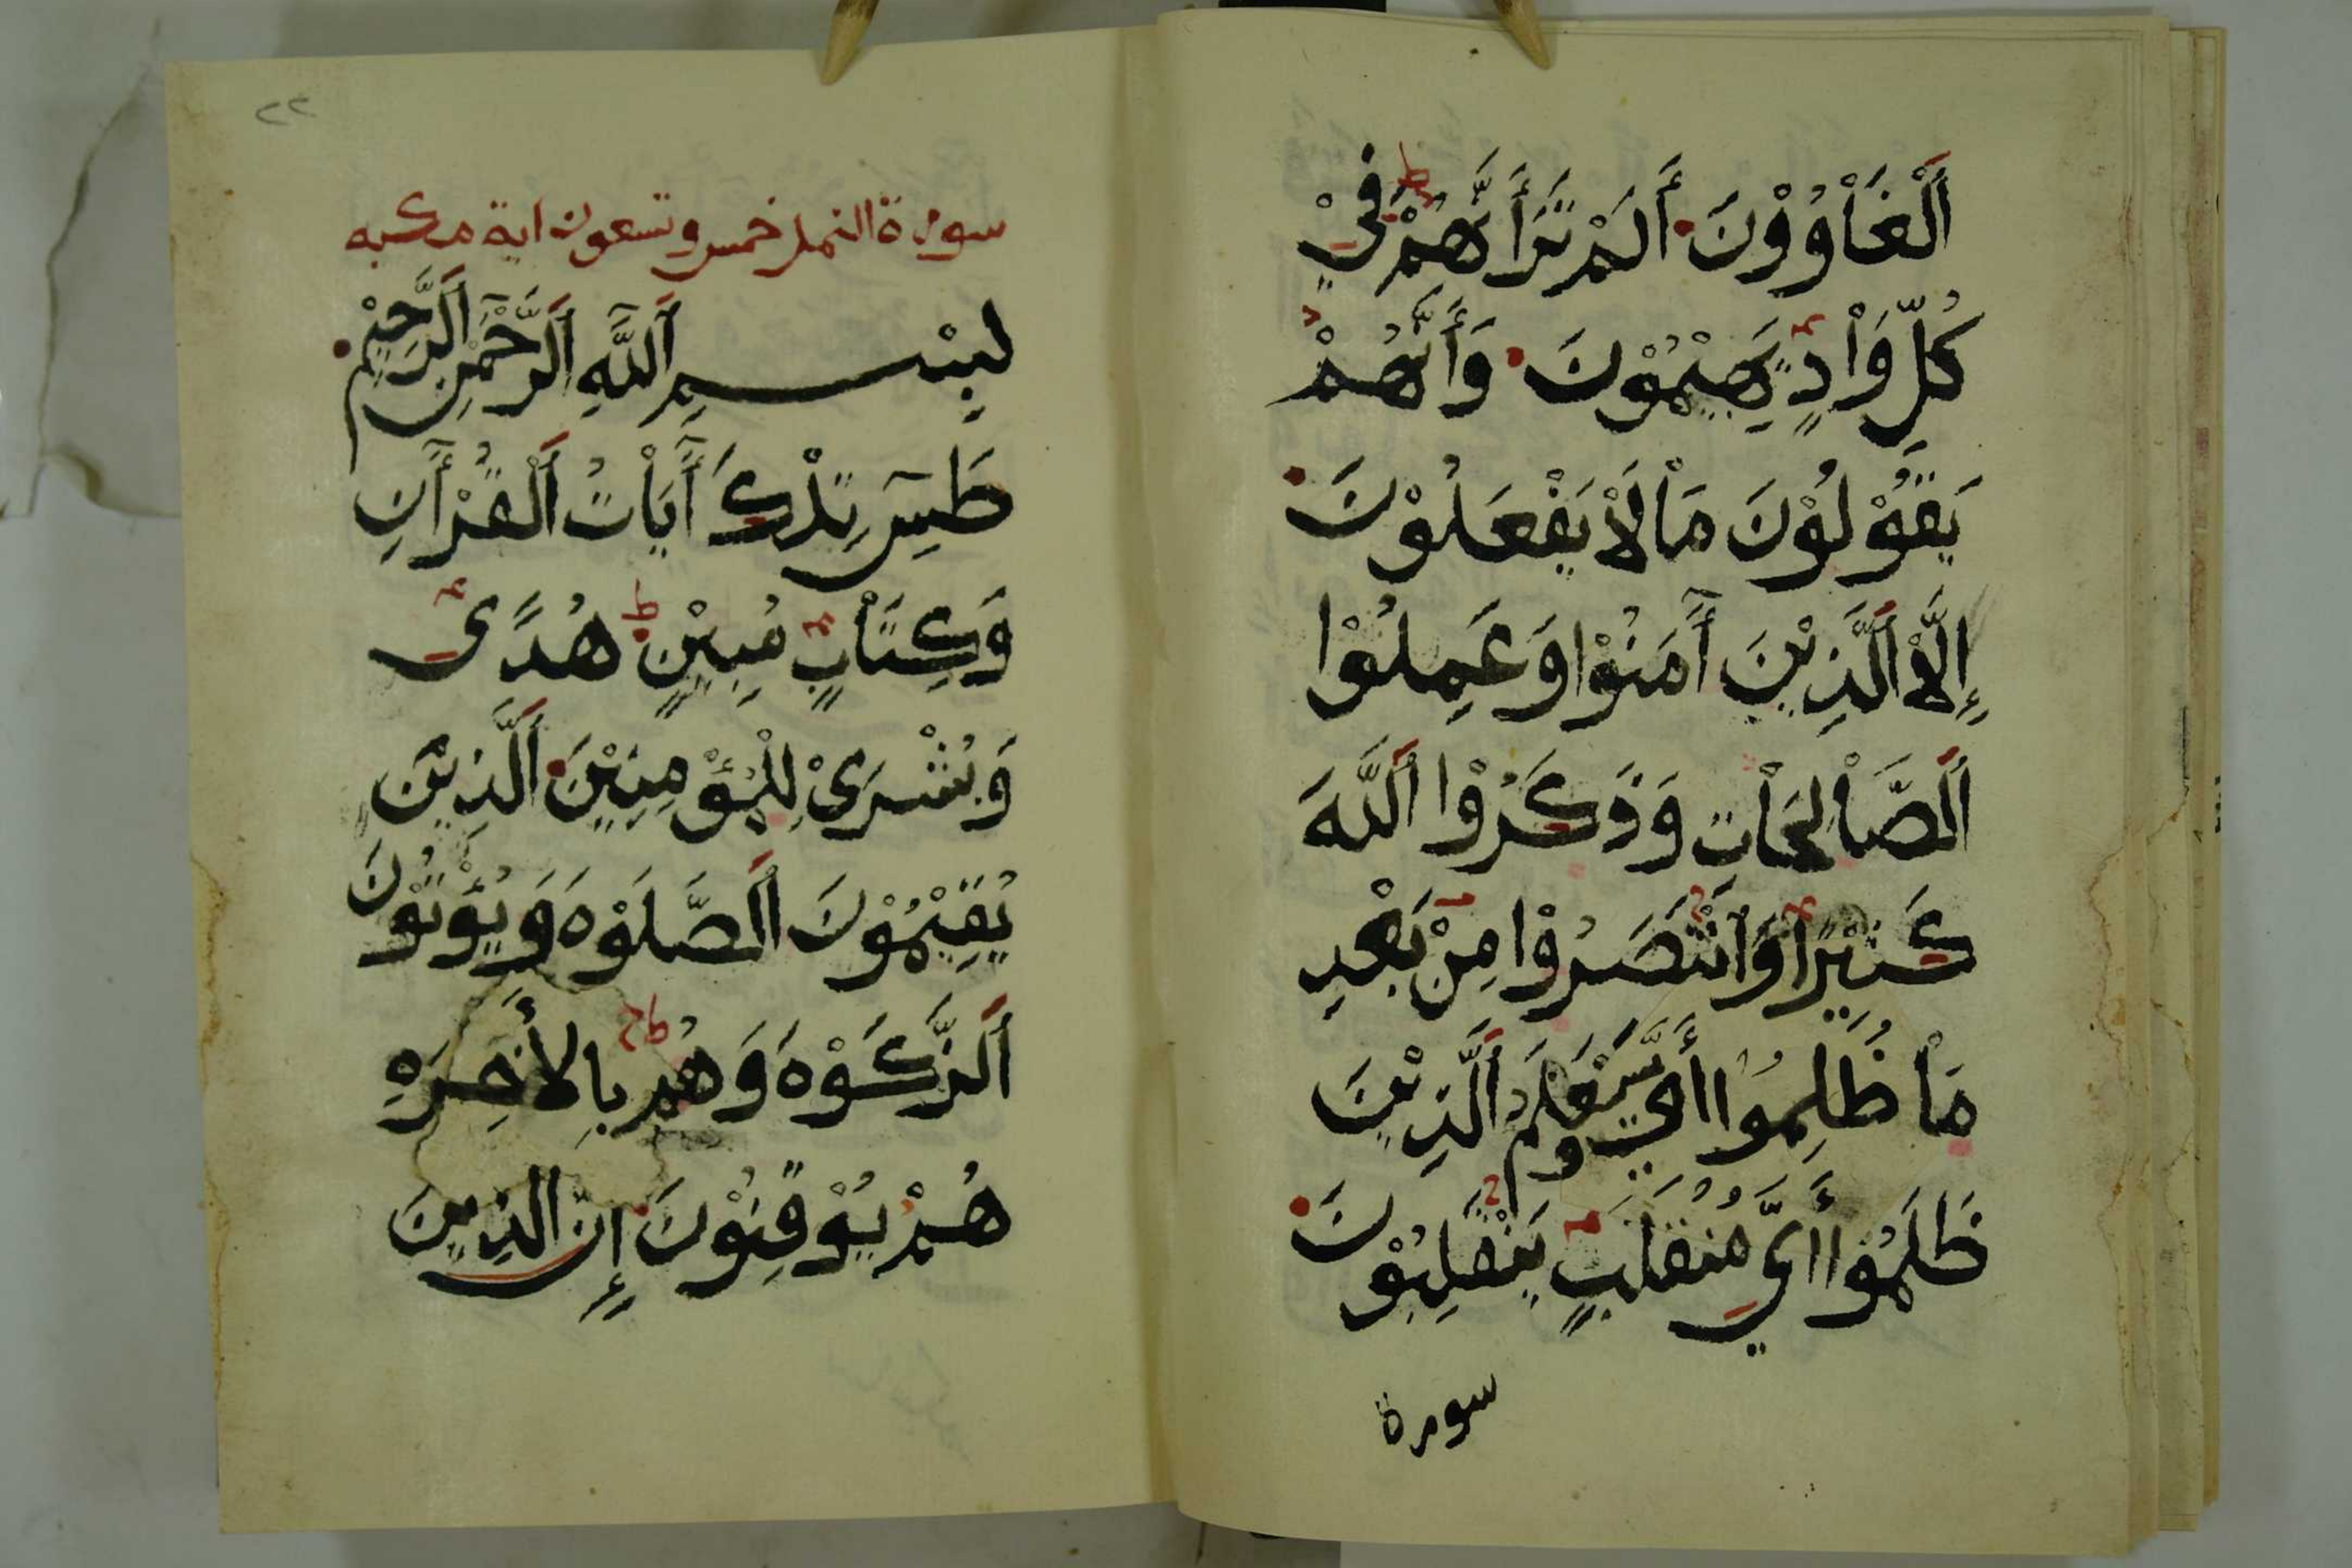 اَلْغَاْوُوْنَ اَلَمْ تَرَ أَنَّهُمْ فِيْ
كُلِّ وَاْدٍ يَهِيْمُوْنَ وَأَنَّهُمْ
يَقُوْلُوْنَ مَاْ لَاْ يَفْعَلُوْنَ
إِلَّاْ اَلَّذِيْنَ أٓمَنُوْا وَعَمِلُوْا
اَلصَّاْلِحَاْتِ وَذَكَرُوْا اَللَّهَ
كَثِيْرًا وَاَنْتَصَرُوْا مِنْ بَعْدِ
مَاْ ظُلِمُوْا وَسَيَعْلَمُ اَلَّذِيْنَ
ظَلَمُوْا أَيَّ مُنْقَلَبٍ يَنْقَلِبُوْنَ
سورة
٢٢
سورة النمل خمس وتسعون اية مكيه
بِسْمِ اَللَّهِ اَلرَّحْمٰنِ اَلرَّحِيْمِ
طٓسٓ تِلْكَ أٓيَاْتُ اَلْقُرْأٓنِ
وَكِتَاْبٍ مُبِيْنٍ هُدًى
وَبُشْرَىْ لِلْمُؤْمِنِيْنَ اَلَّذِيْنَ
يُقِيْمُوْنَ اَلصَّلَوْهَ وَيُؤْتُوْنَ
اَلزَّكَوْهَ وَهُمْ بِالأَخِرَهِ
هُمْ يُوْقِنُوْنَ إِنَّ الَّذِيْنَ